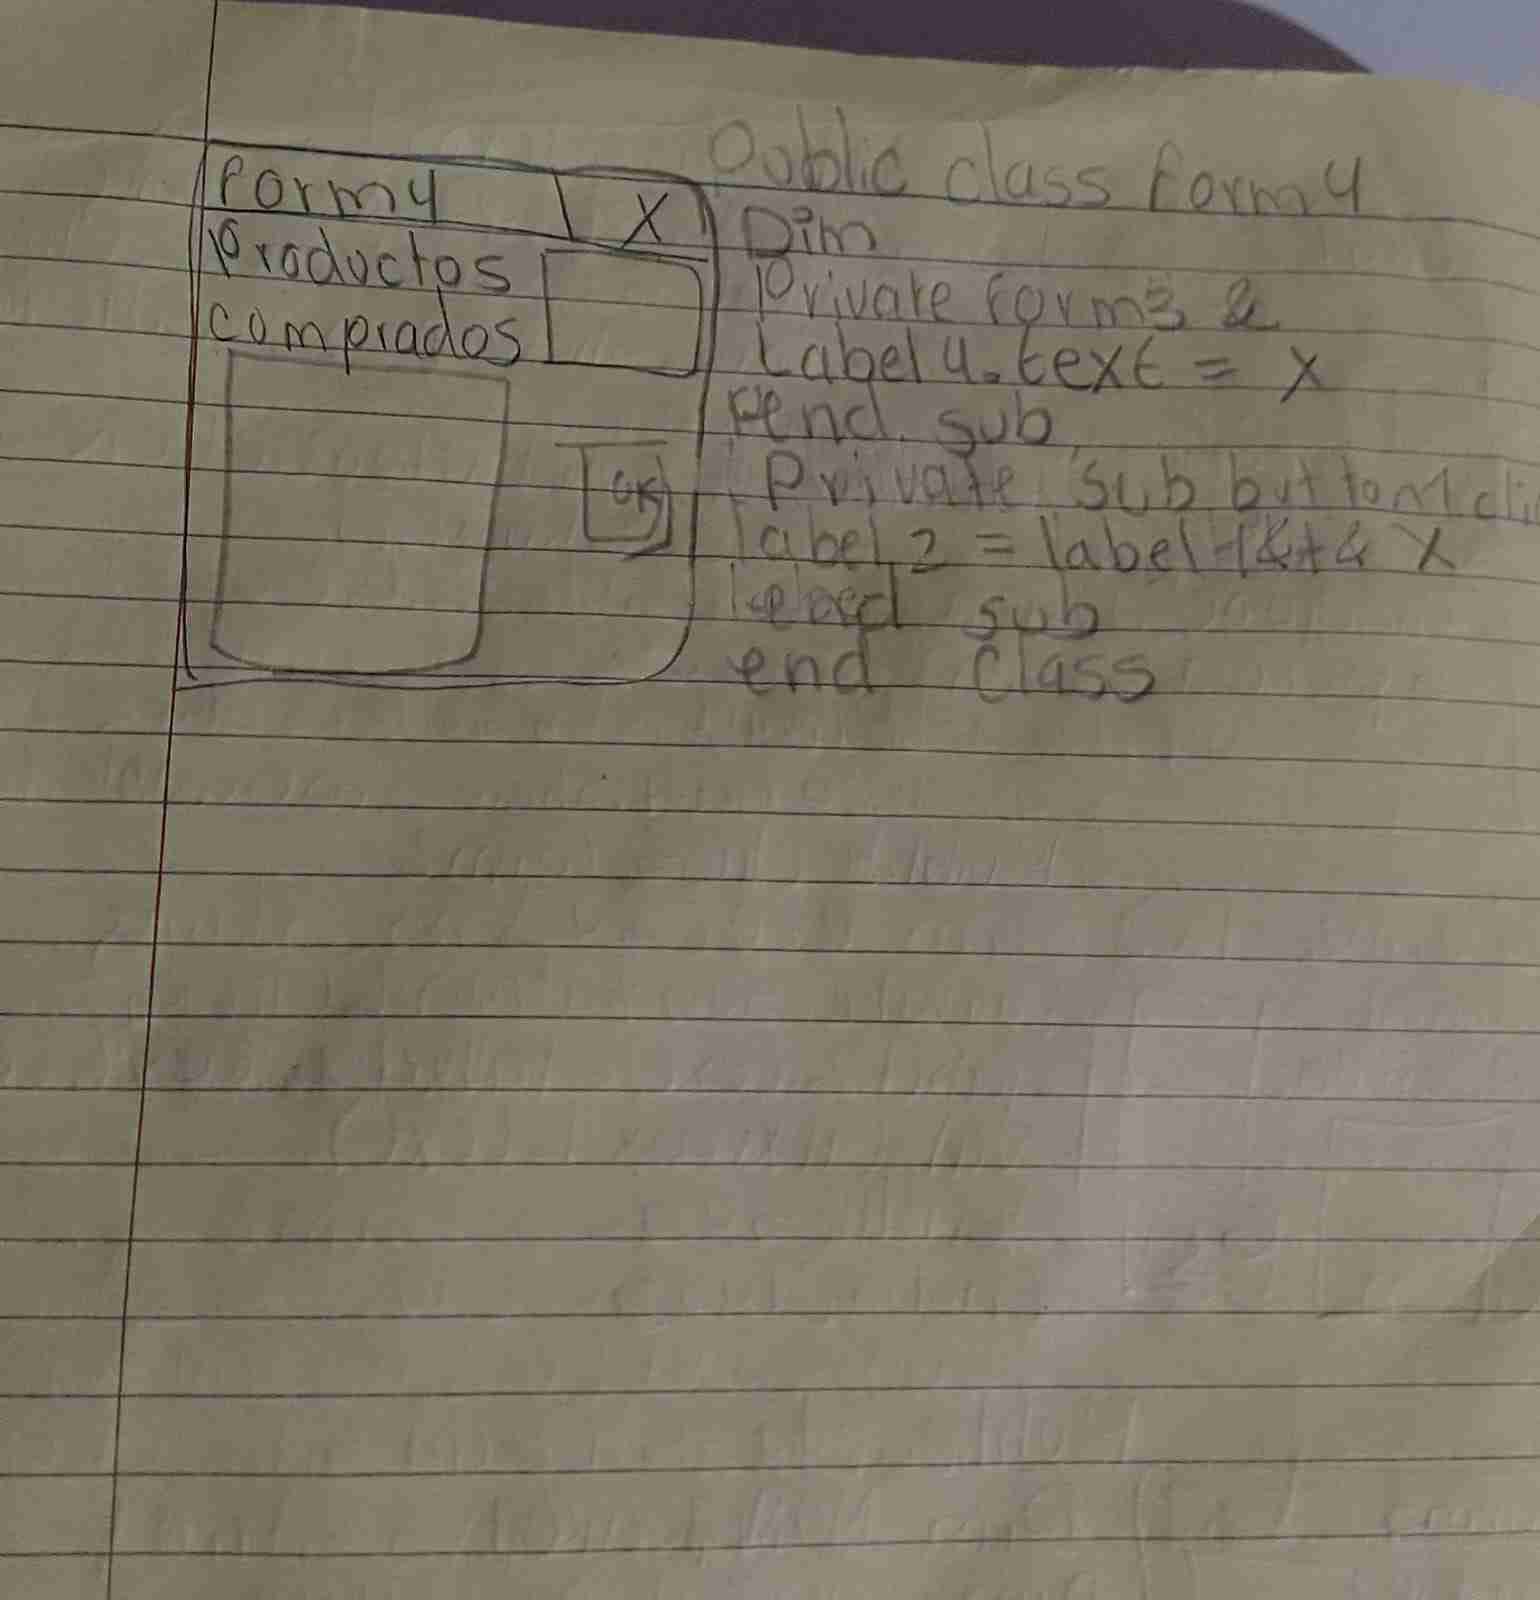 Form4 X
Productos
comprados
OK
Public class Form4
Dim
Private Form3 &
Label4.text = X
end sub
Private sub button1cli
label 2 = label 1 & + & X
end sub
end class